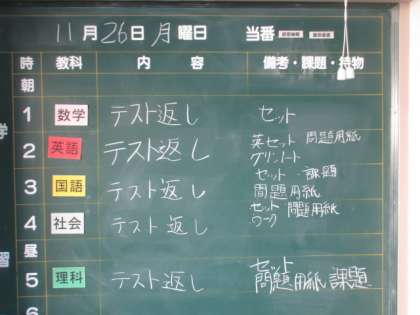 11月26日月曜日 当番
時 教科 内容 備考・課題・持物
朝
1 数学 テスト返し セット
2 英語 テスト返し 英セット 問題用紙
グリーンノート
3 国語 テスト返し セット 課題
問題用紙
4 社会 テスト返し セット 問題用紙
ワーク
昼
5 理科 テスト返し セット
問題用紙 課題
6